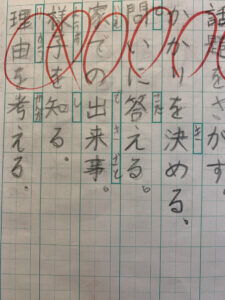 話題をさがす。
かかりを決める。
問いに答える。
家での出来事。
様子を知る。
理由を考える。